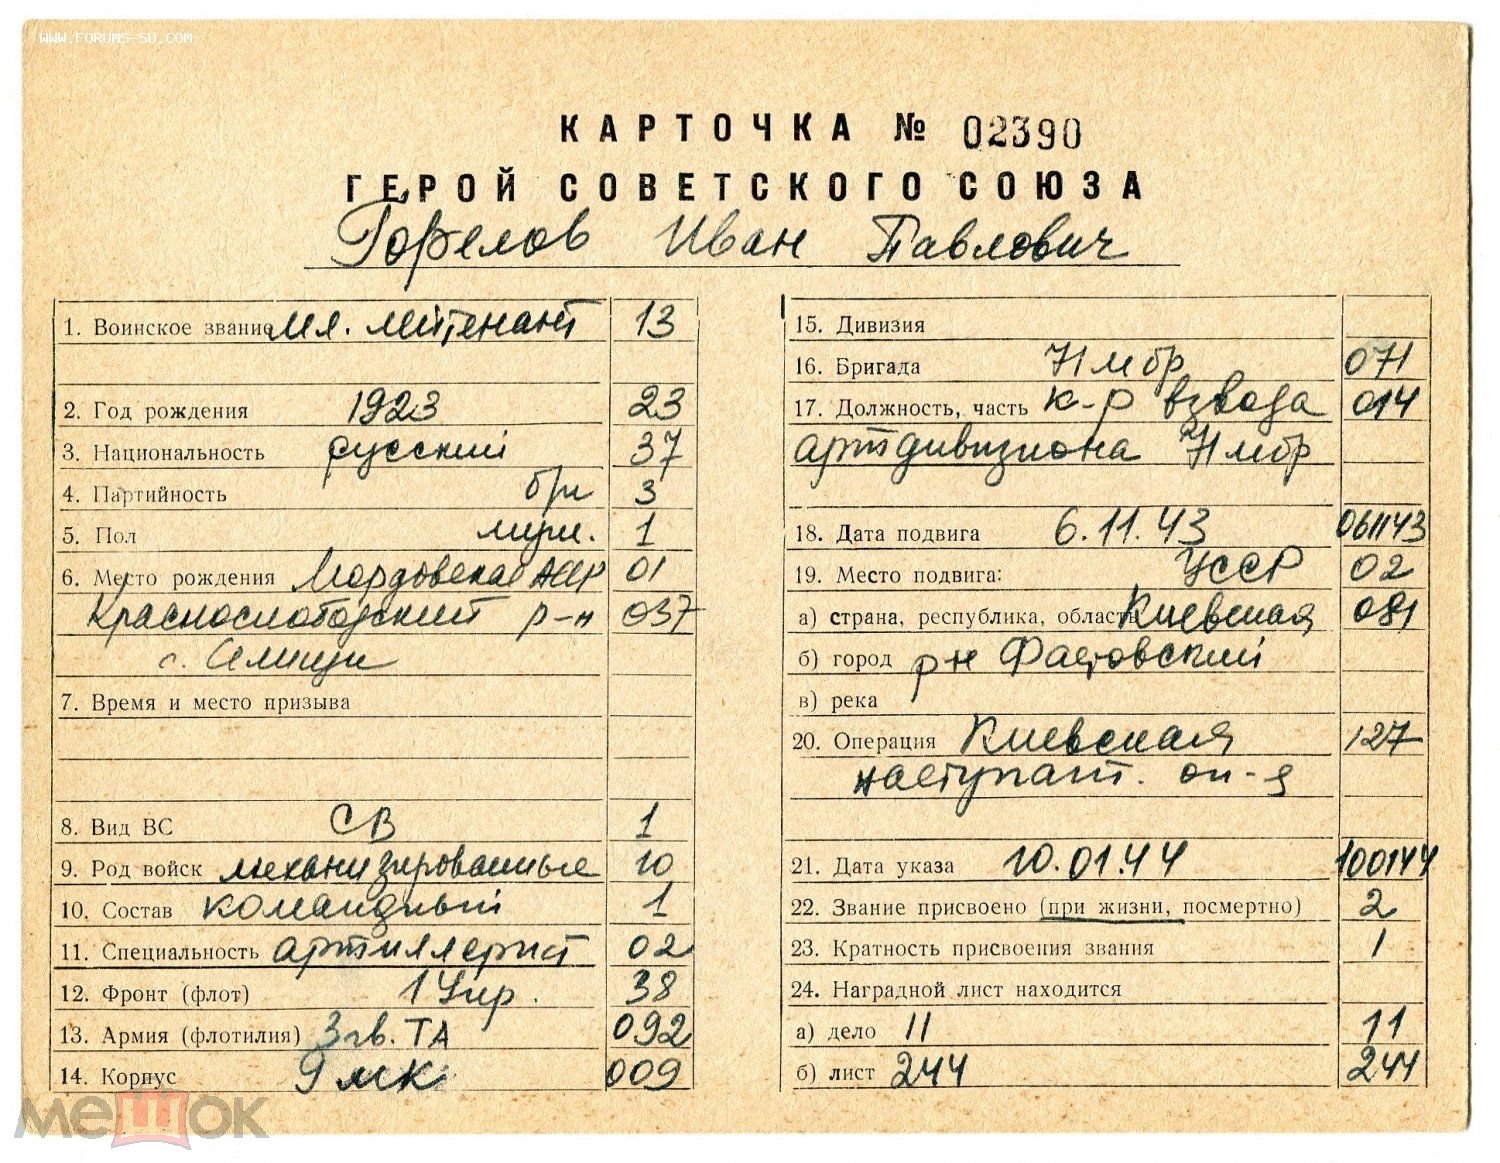 WWW.FORUMS-SU.COM
КАРТОЧКА № 02390
ГЕРОЙ СОВЕТСКОГО СОЮЗА
Горелов Иван Павлович
1. Воинское звание мл. лейтенант 13
2. Год рождения 1923 23
3. Национальность русский 37
4. Партийность б/п 3
5. Пол муж. 1
6. Место рождения Мордовская АССР 01
Краснослободский р-н 037
с.
7. Время и место призыва
8. Вид ВС СВ 1
9. Род войск механизированные 10
10. Состав командный 1
11. Специальность артиллерист 02
12. Фронт (флот) 1 Укр. 38
13. Армия (флотилия) 3 гв. ТА 092
14. Корпус 9 мк 009
15. Дивизия
16. Бригада 71 мбр 071
17. Должность, часть к-р взвода 014
артдивизиона 71 мбр
18. Дата подвига 6.11.43 061143
19. Место подвига: УССР 02
а) страна, республика, область Киевская 081
б) город р-н Фастовский
в) река
20. Операция Киевская 127
наступат. оп-я
21. Дата указа 10.01.44 100144
22. Звание присвоено (при жизни, посмертно) 2
23. Кратность присвоения звания 1
24. Наградной лист находится
а) дело 11 11
б) лист 244 244
мешок